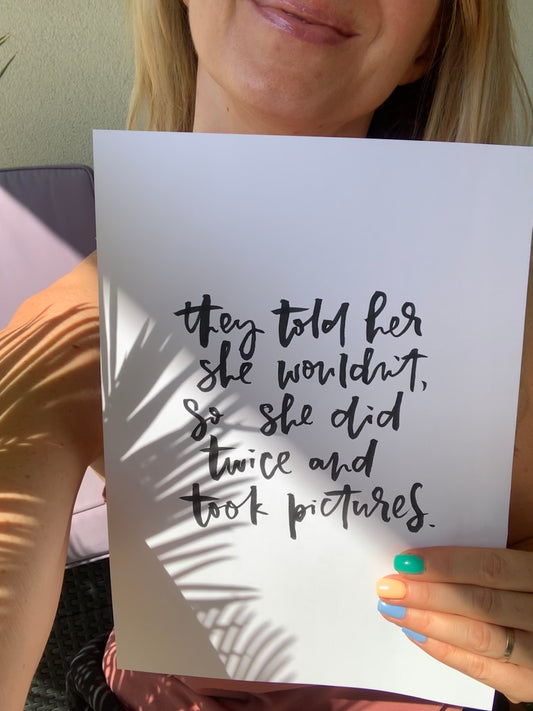 they told her
she wouldn't,
so she did
twice and
took pictures.